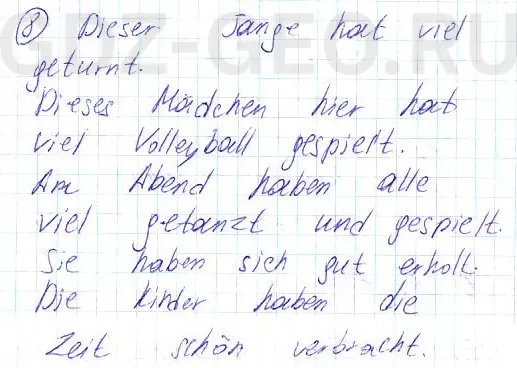 8) Dieser Junge hat viel
geturnt.
Dieses Mädchen hier hat
viel Volleyball gespielt.
Am Abend haben alle
viel getanzt und gespielt.
Sie haben sich gut erholt.
Die Kinder haben die
Zeit schön verbracht.
GDZ-GEO.RU